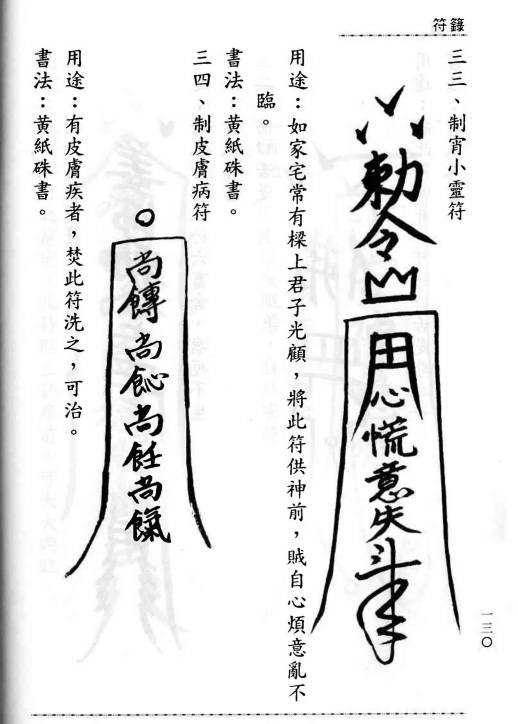 符籙
三三、制宵小靈符
勅令
田
心慌意失斗
用途：如家宅常有樑上君子光顧，將此符供神前，賊自心煩意亂不
臨。
書法：黃紙硃書。
三四、制皮膚病符
尚
尚
尚飪尚
用途：有皮膚疾者，焚此符洗之，可治。
書法：黃紙硃書。
一三〇